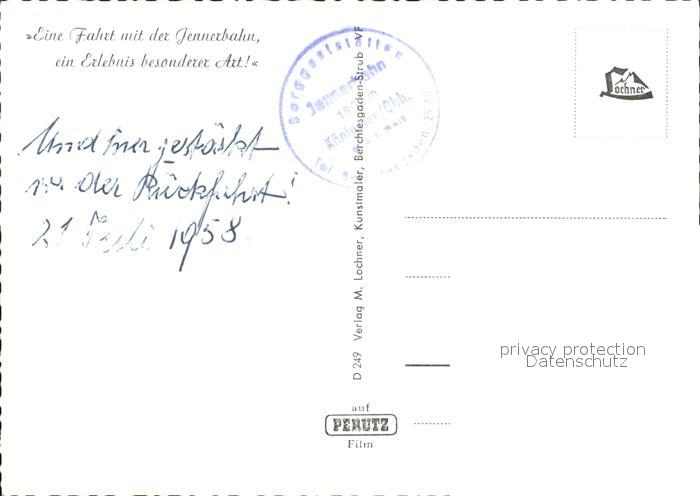 »Eine Fahrt mit der Jennerbahn,
ein Erlebnis besonderer Art!«
Und hier gestärkt
der Rückfahrt!
21 Juli 1958
Berggaststätten
Jennerbahn
Tel
Lochner
D 249 Verlag M. Lochner, Kunstmaler, Berchtesgaden-Strub VF
privacy protection
Datenschutz
auf
PERUTZ
Film